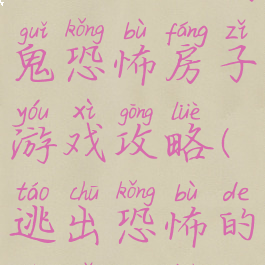 guǐ kǒng bù fáng zǐ
鬼恐怖房子
yóu xì gōng lüè
游戏攻略(
táo chū kǒng bù de
逃出恐怖的